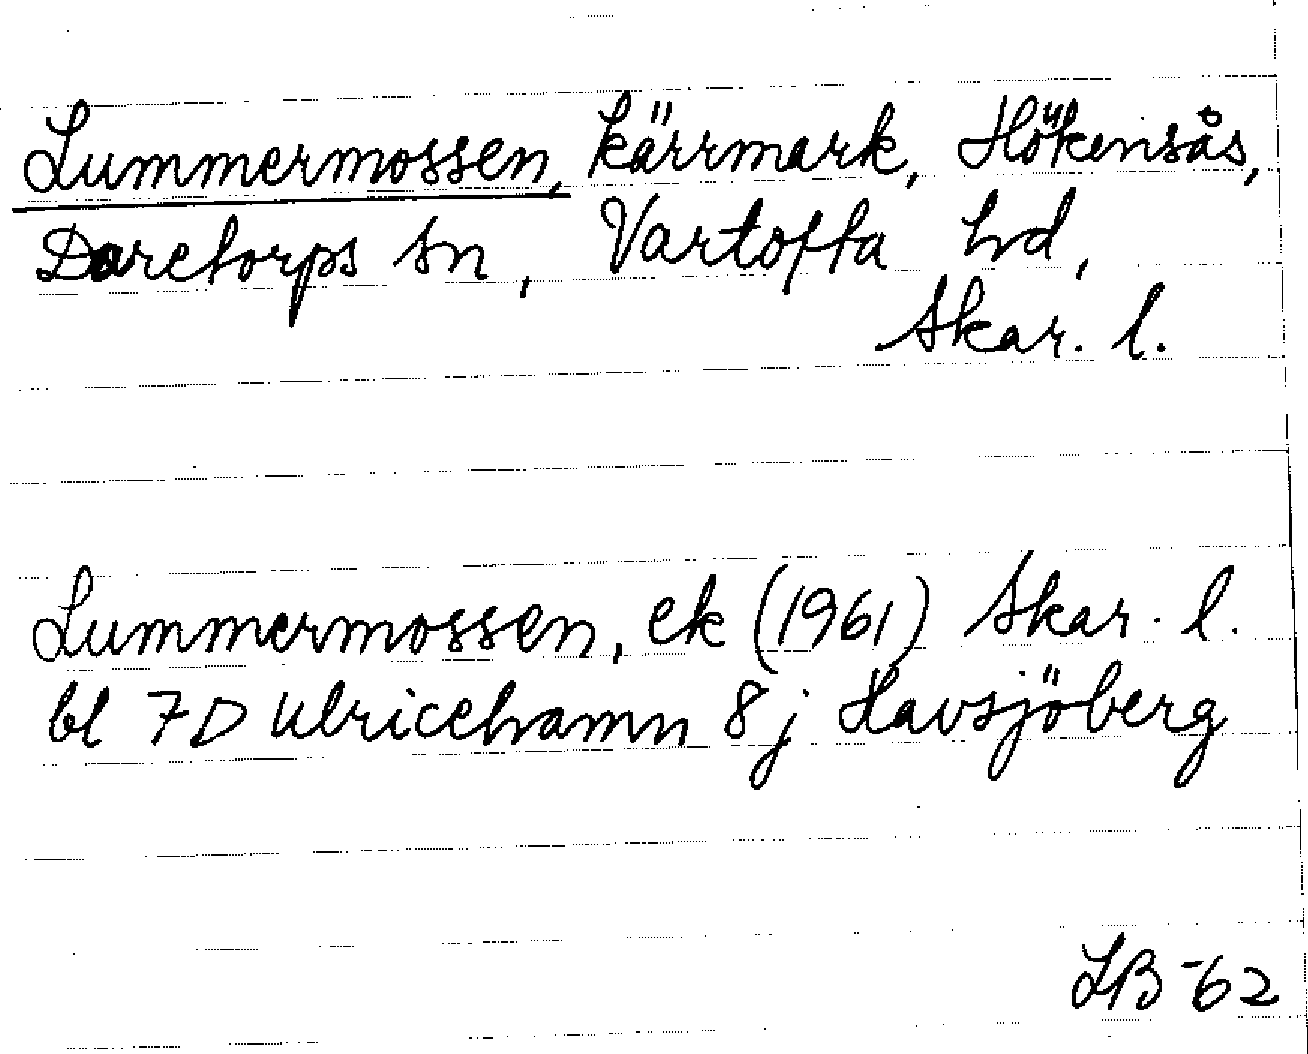 Lummermossen, kärrmark, Hökensås,
Daretorps sn, Vartofta hd,
Skar. l.
Lummermossen, ek (1961) Skar. l.
bl 7D Ulricehamn 8j Havsjöberg
LB-62